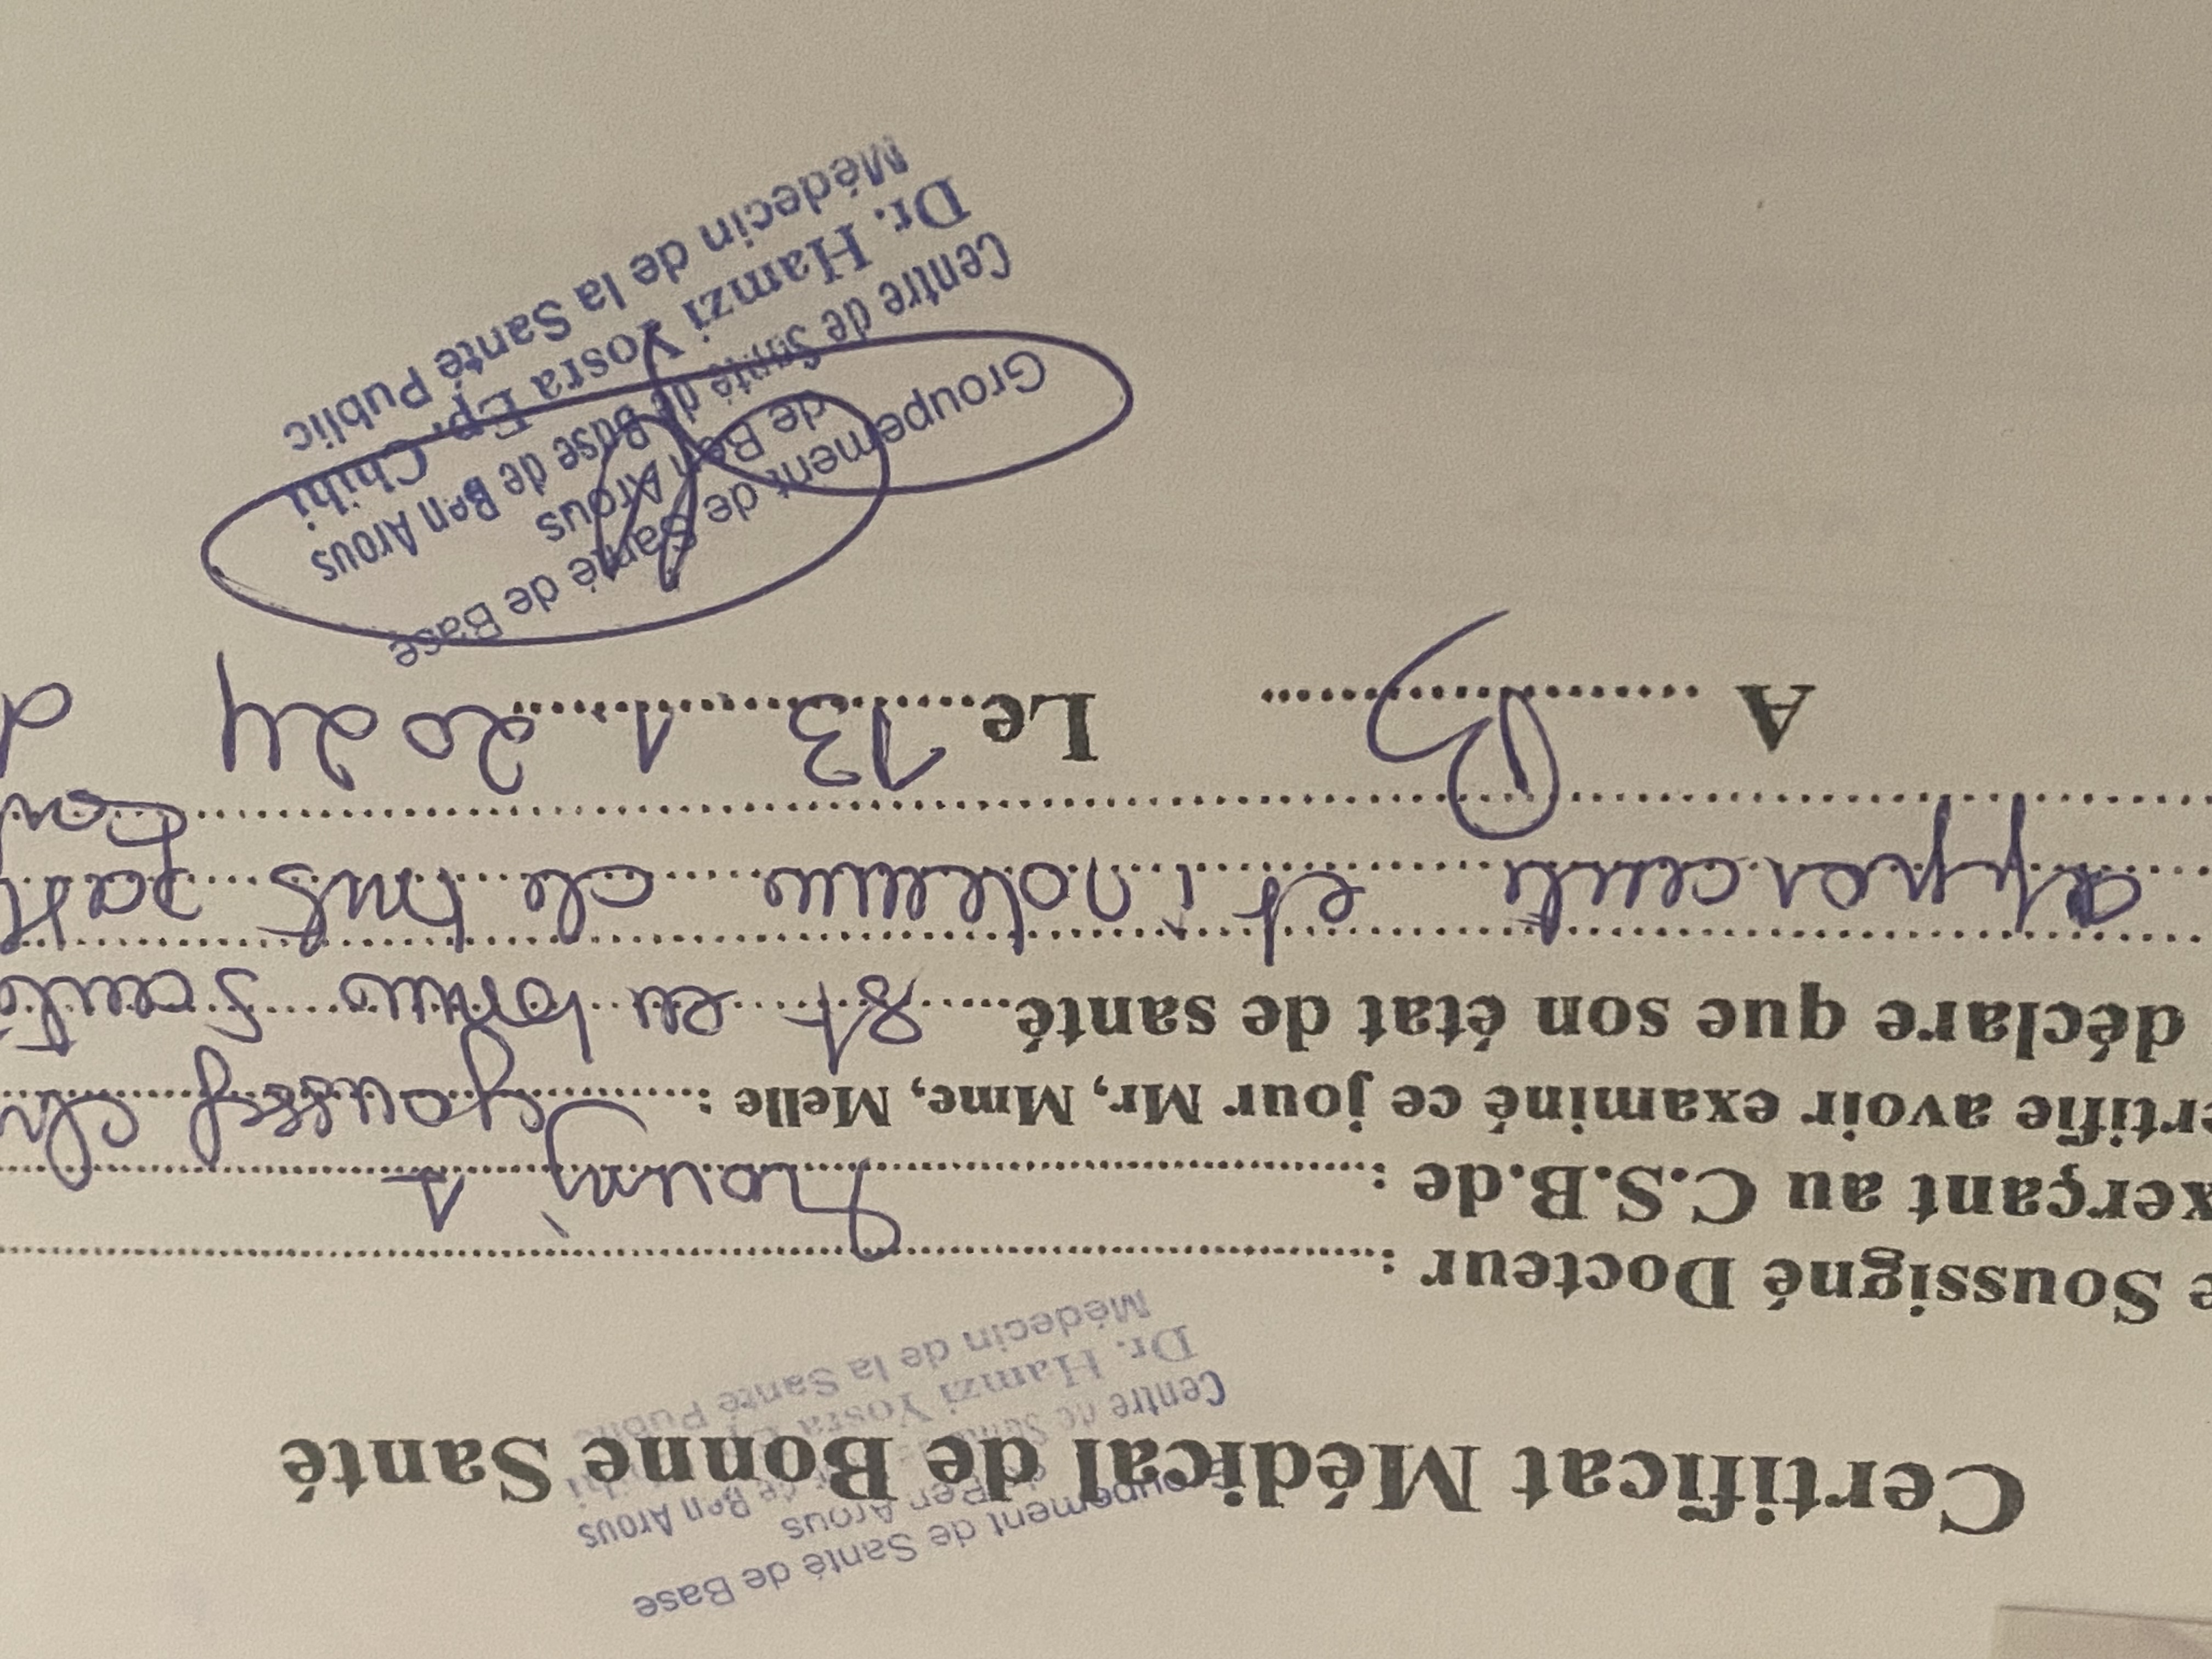 Groupement de Santé de Base
de Ben Arous
Centre de Santé de Base de Ben Arous
Dr. Hamzi Yosra Ep. Chihi
Médecin de la Santé Public
Certificat Médical de Bonne Santé
Soussigné Docteur :
exerçant au C.S.B.de :
certifie avoir examiné ce jour Mr, Mme, Melle :
déclare que son état de santé est en bonne santé
apparente et indemne de tous
A B Le 13 1 2024
Groupement de Santé de Base
de Ben Arous
Centre de Santé de Base de Ben Arous
Dr. Hamzi Yosra Ep. Chihi
Médecin de la Santé Public